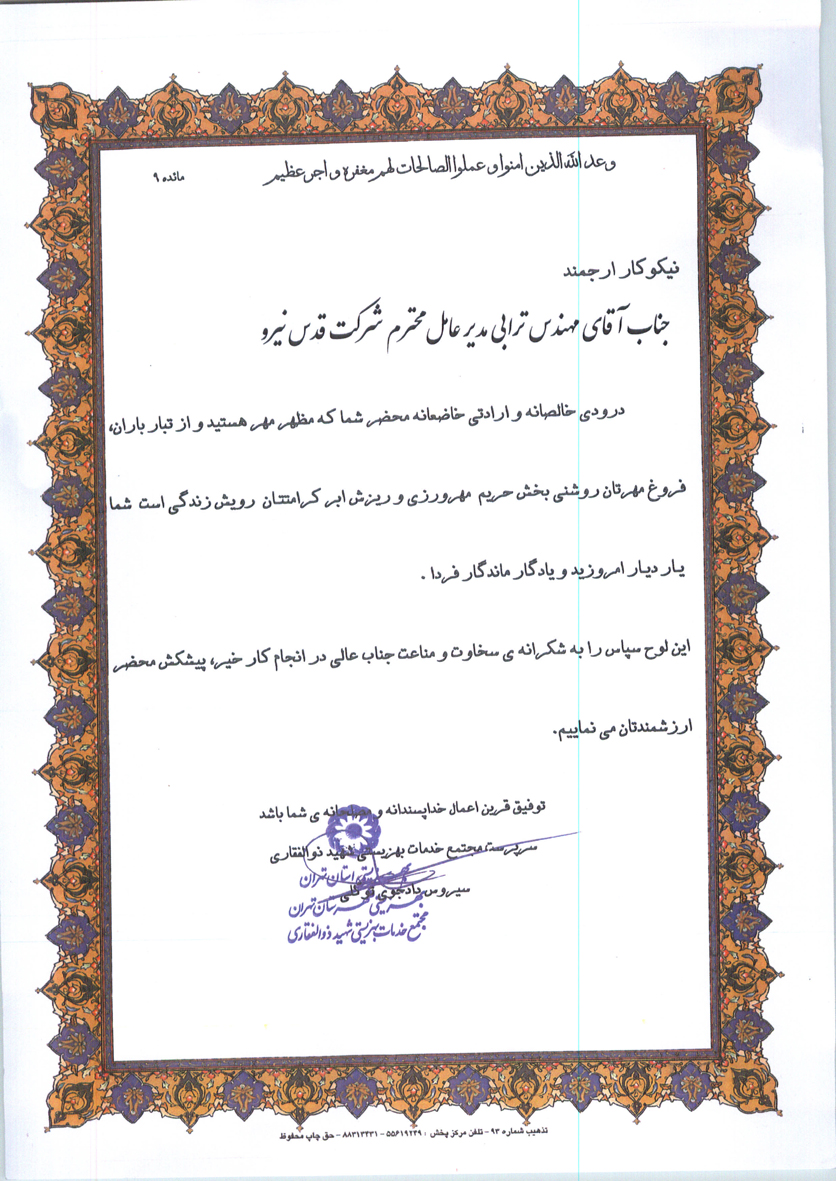 وعد الله الذین امنوا و عملوا الصالحات لهم مغفرة و اجر عظیم
مائده ۹
نیکوکار ارجمند
جناب آقای مهندس ترابی مدیر عامل محترم شرکت قدس نیرو
درودی خالصانه و ارادتی خاضعانه محضر شما که مظهر مهر هستید و از تبار باران،
فروغ مهرتان روشنی بخش حریم مهرورزی و ریزش ابر کرامتتان رویش زندگی است شما
یار دیار امروزید و یادگار ماندگار فردا .
این لوح سپاس را به شکرانه ی سخاوت و مناعت جناب عالی در انجام کار خیر، پیشکش محضر
ارزشمندتان می نماییم.
توفیق قرین اعمال خداپسندانه و ی شما باشد
سرپرست مجتمع خدمات بهزیستی شهید ذوالفقاری
سیروس دادجوی توکلی
استان تهران
بهزیستی شهرستان تهران
مجتمع خدمات بهزیستی شهید ذوالفقاری
تذهیب شماره ۹۳ - تلفن مرکز پخش : ۵۵۶۱۹۲۳۹ - ۸۸۳۱۳۴۳۱ - حق چاپ محفوظ